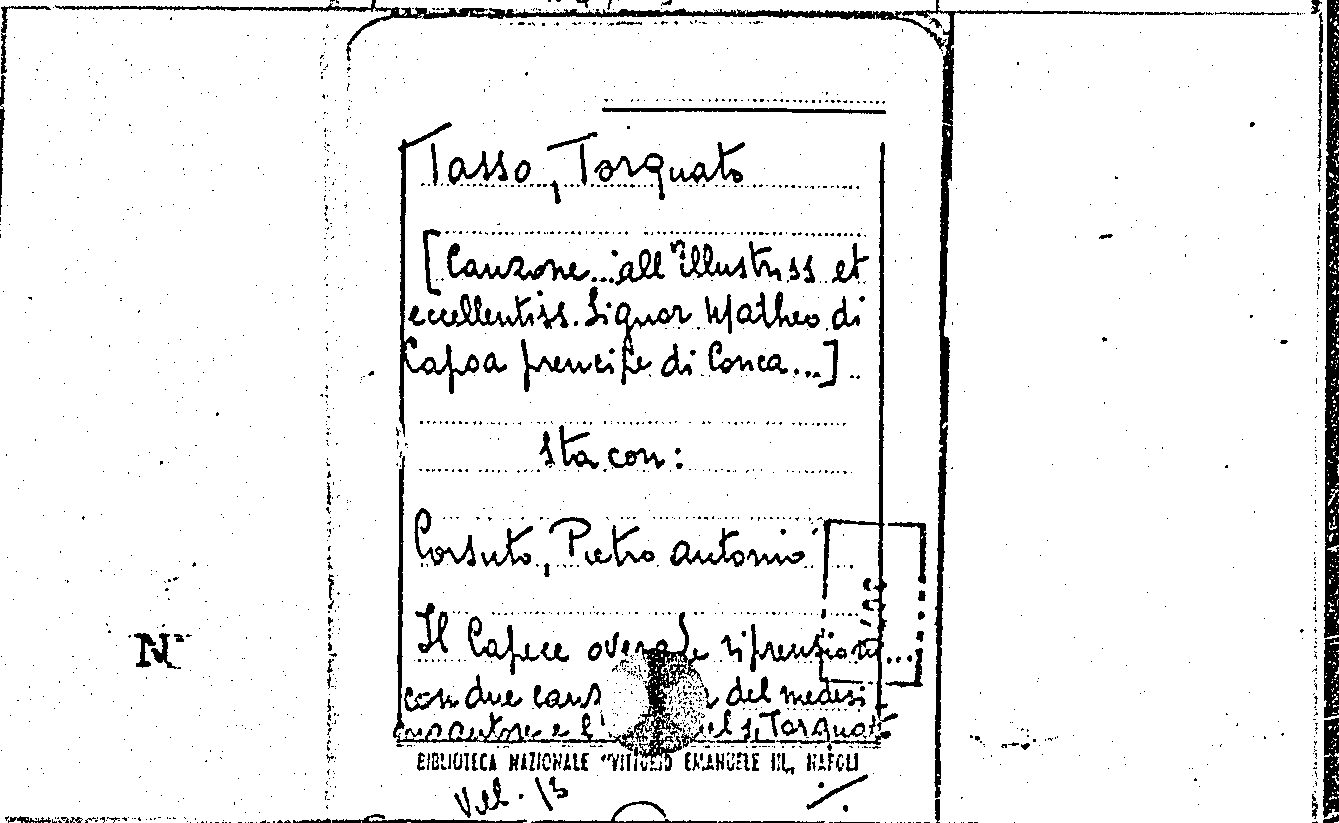 Tasso, Torquato
[Canzone...all'illustriss et
eccellentiss. Signor Matheo di
Capoa prencipe di Conca...]
Sta con:
Corsuto, Pietro Antonio
Il Capece overo le riprensioni...
con due canz del medesi
mo autore e l' del S. Torquat
BIBLIOTECA NAZIONALE "VITTORIO EMANUELE III, NAPOLI
N